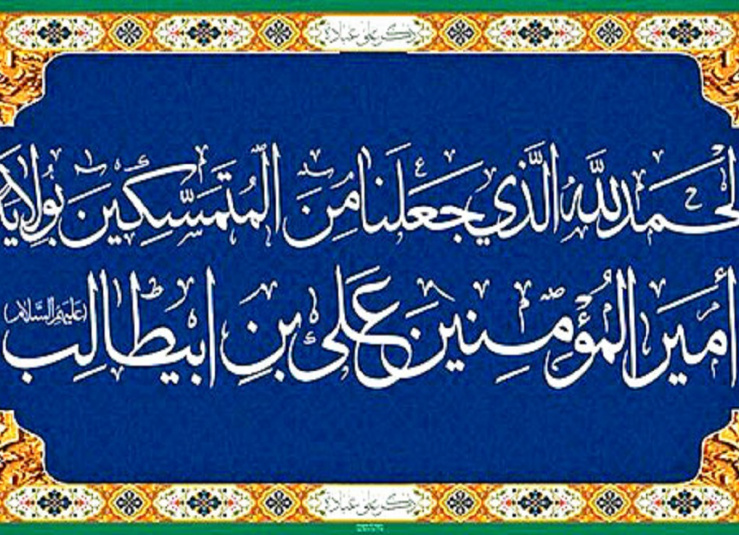 ذكر علي عبادة
الحمد لله الذي جعلنا من المتمسكين بولاية
أمير المؤمنين علي بن ابيطالب (عليهم السلام)
ذكر علي عبادة